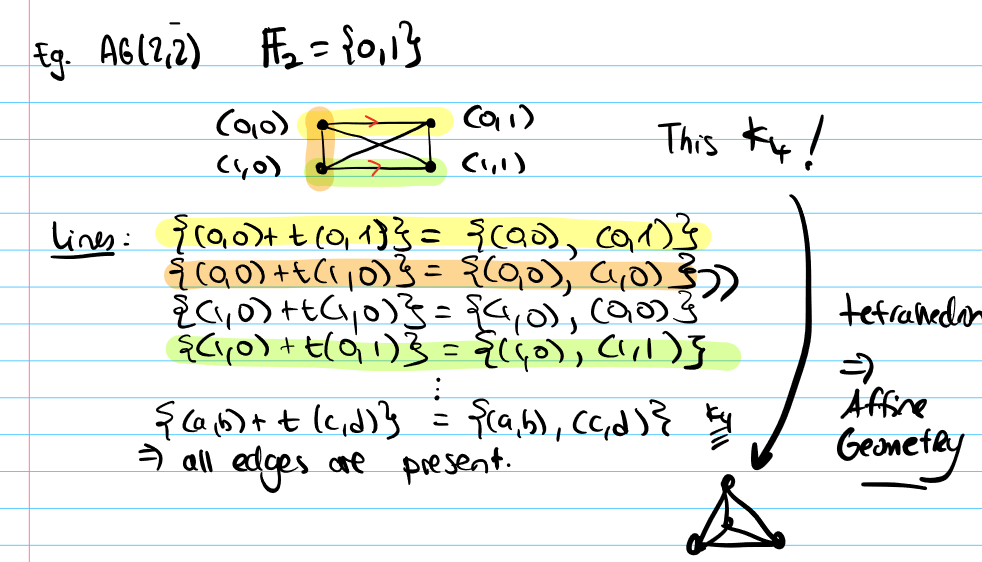 Eg. AG(2,2) 𝔽₂ = {0,1}
(0,0) (0,1)
(1,0) (1,1)
This K₄!
Lines: {(0,0)+ t(0,1)} = {(0,0), (0,1)}
{(0,0)+t(1,0)} = {(0,0), (1,0)}
{(1,0)+t(1,0)} = {(1,0), (0,0)}
{(1,0)+t(0,1)} = {(1,0), (1,1)}
⋮
{(a,b)+ t (c,d)} = {(a,b), (c,d)} K₄
⇒ all edges are present.
tetrahedron
⇒
Affine
Geometry